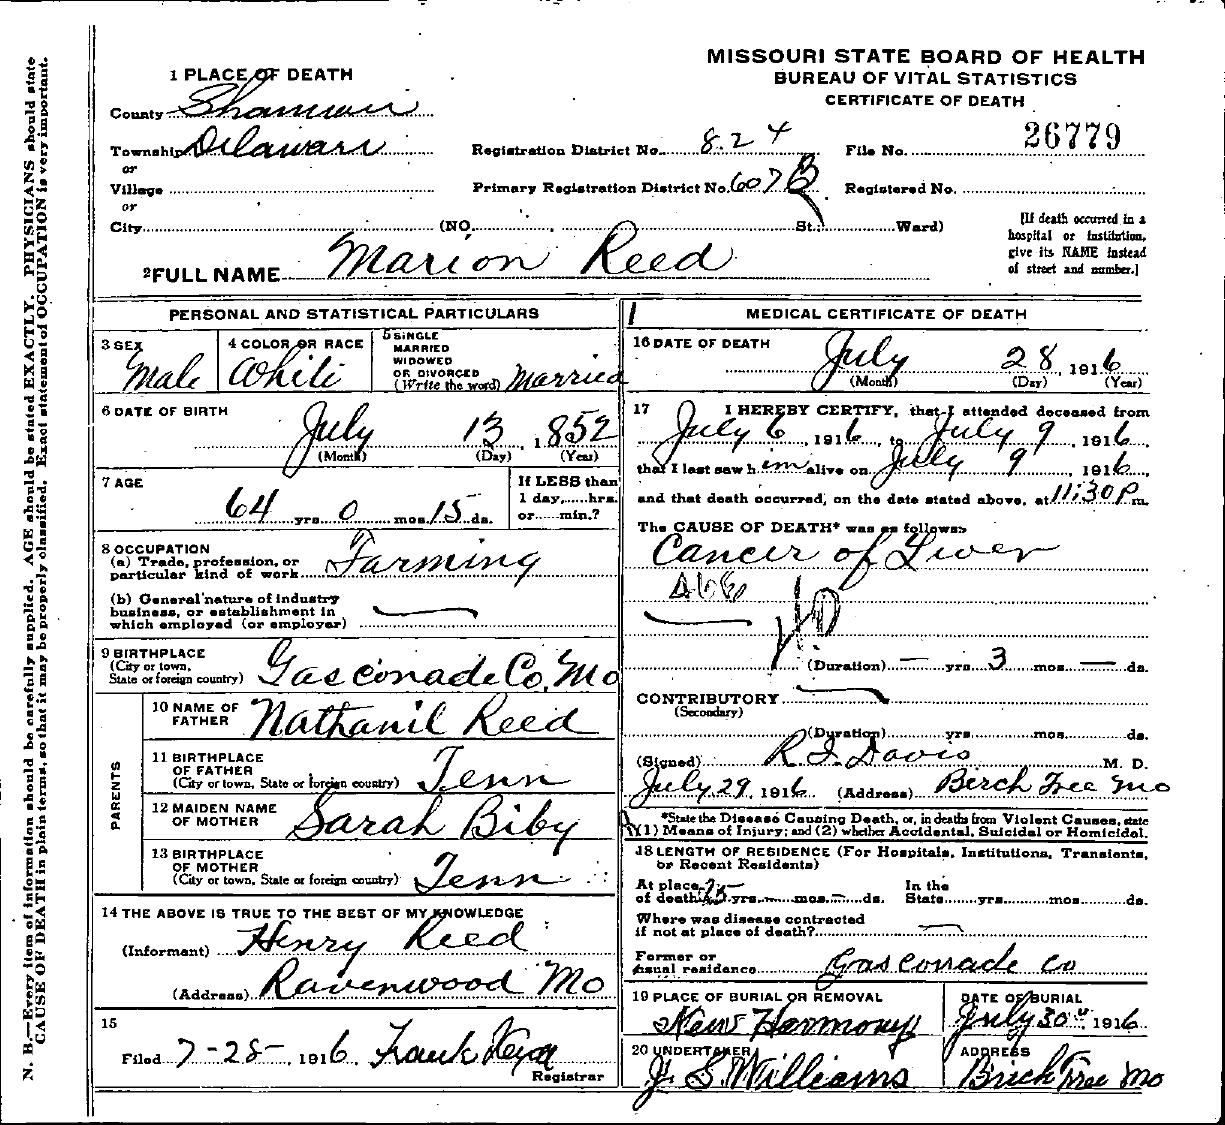 MISSOURI STATE BOARD OF HEALTH
BUREAU OF VITAL STATISTICS
CERTIFICATE OF DEATH
1 PLACE OF DEATH
County Shannon
Township Delaware
or
Village
or
City (NO. St. Ward)
Registration District No. 824
File No. 26779
Primary Registration District No. 607B
Registered No.
[If death occurred in a
hospital or institution,
give its NAME instead
of street and number.]
2 FULL NAME Marion Reed
PERSONAL AND STATISTICAL PARTICULARS
3 SEX
Male
4 COLOR OR RACE
White
5 SINGLE
MARRIED
WIDOWED
OR DIVORCED
(Write the word) Married
6 DATE OF BIRTH
July 13, 1852
(Month) (Day) (Year)
7 AGE
64 yrs. 0 mos. 15 ds.
If LESS than
1 day, hrs.
or min.?
8 OCCUPATION
(a) Trade, profession, or
particular kind of work Farming
(b) General nature of industry
business, or establishment in
which employed (or employer) —
9 BIRTHPLACE
(City or town,
State or foreign country) Gasconade Co, Mo
PARENTS
10 NAME OF
FATHER Nathanil Reed
11 BIRTHPLACE
OF FATHER
(City or town, State or foreign country) Tenn
12 MAIDEN NAME
OF MOTHER Sarah Biby
13 BIRTHPLACE
OF MOTHER
(City or town, State or foreign country) Tenn
14 THE ABOVE IS TRUE TO THE BEST OF MY KNOWLEDGE
(Informant) Henry Reed
(Address) Ravenwood Mo
15
Filed 7-28-, 1916 Frank
Registrar
MEDICAL CERTIFICATE OF DEATH
16 DATE OF DEATH
July 28, 1916
(Month) (Day) (Year)
17 I HEREBY CERTIFY, that I attended deceased from
July 6, 1916, to July 9, 1916,
that I last saw him alive on July 9, 1916,
and that death occurred, on the date stated above, at 11:30 P m.
The CAUSE OF DEATH* was as follows:
Cancer of Liver
(Duration) — yrs. 3 mos. — ds.
CONTRIBUTORY —
(Secondary)
(Duration) yrs. mos. ds.
(Signed) R. I. Davis M. D.
July 29, 1916 (Address) Berch Tree Mo
*State the Disease Causing Death, or, in deaths from Violent Causes, state
(1) Means of Injury; and (2) whether Accidental, Suicidal or Homicidal.
18 LENGTH OF RESIDENCE (For Hospitals, Institutions, Transients,
or Recent Residents)
At place
of death 25 yrs. — mos. — ds.
In the
State yrs. mos. ds.
Where was disease contracted
if not at place of death? —
Former or
usual residence Gasconade Co
19 PLACE OF BURIAL OR REMOVAL
New Harmony
DATE OF BURIAL
July 30, 1916
20 UNDERTAKER
J. S. Williams
ADDRESS
Birch Tree Mo
N. B.—Every item of information should be carefully supplied. AGE should be stated EXACTLY. PHYSICIANS should state
CAUSE OF DEATH in plain terms, so that it may be properly classified. Exact statement of OCCUPATION is very important.